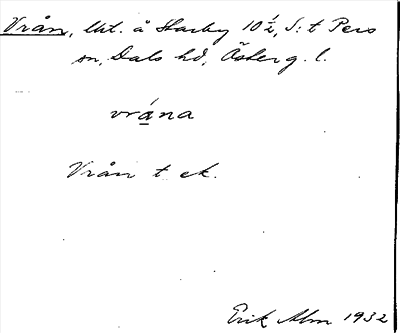 Vrån, Utt. å Starby 10 ½, S:t Pers
sn, Dals hd, Österg. l.
vrána
Vrån t ek.
Erik Alm 1932